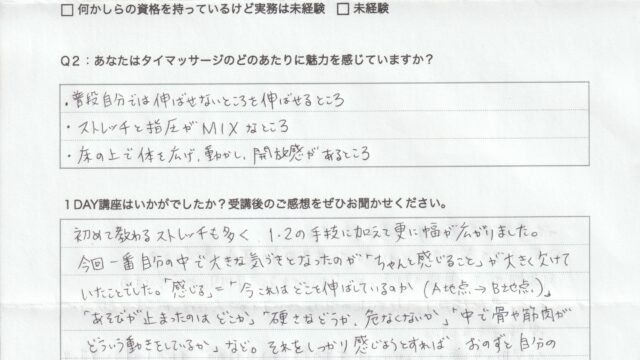 □ 何かしらの資格を持っているけど実務は未経験 □ 未経験
Q2：あなたはタイマッサージのどのあたりに魅力を感じていますか？
・普段自分では伸ばせないところを伸ばせるところ
・ストレッチと指圧がMIXなところ
・床の上で体を広げ、動かし、開放感があるところ
1DAY講座はいかがでしたか？受講後のご感想をぜひお聞かせください。
初めて教わるストレッチも多く、1・2の手技に加えて更に幅が広がりました。
今回一番自分の中で大きな気づきとなったのが「ちゃんと感じること」が大きく欠けて
いたことでした。「感じる」=「今これはどこを伸ばしているのか（A地点→B地点）」
「あそびが止まったのはどこか」「硬さなどうか、危なくないか」「中で骨や筋肉が
どういう動きをしているか」など。それをしっかり感じようとすれば、おのずと自分の